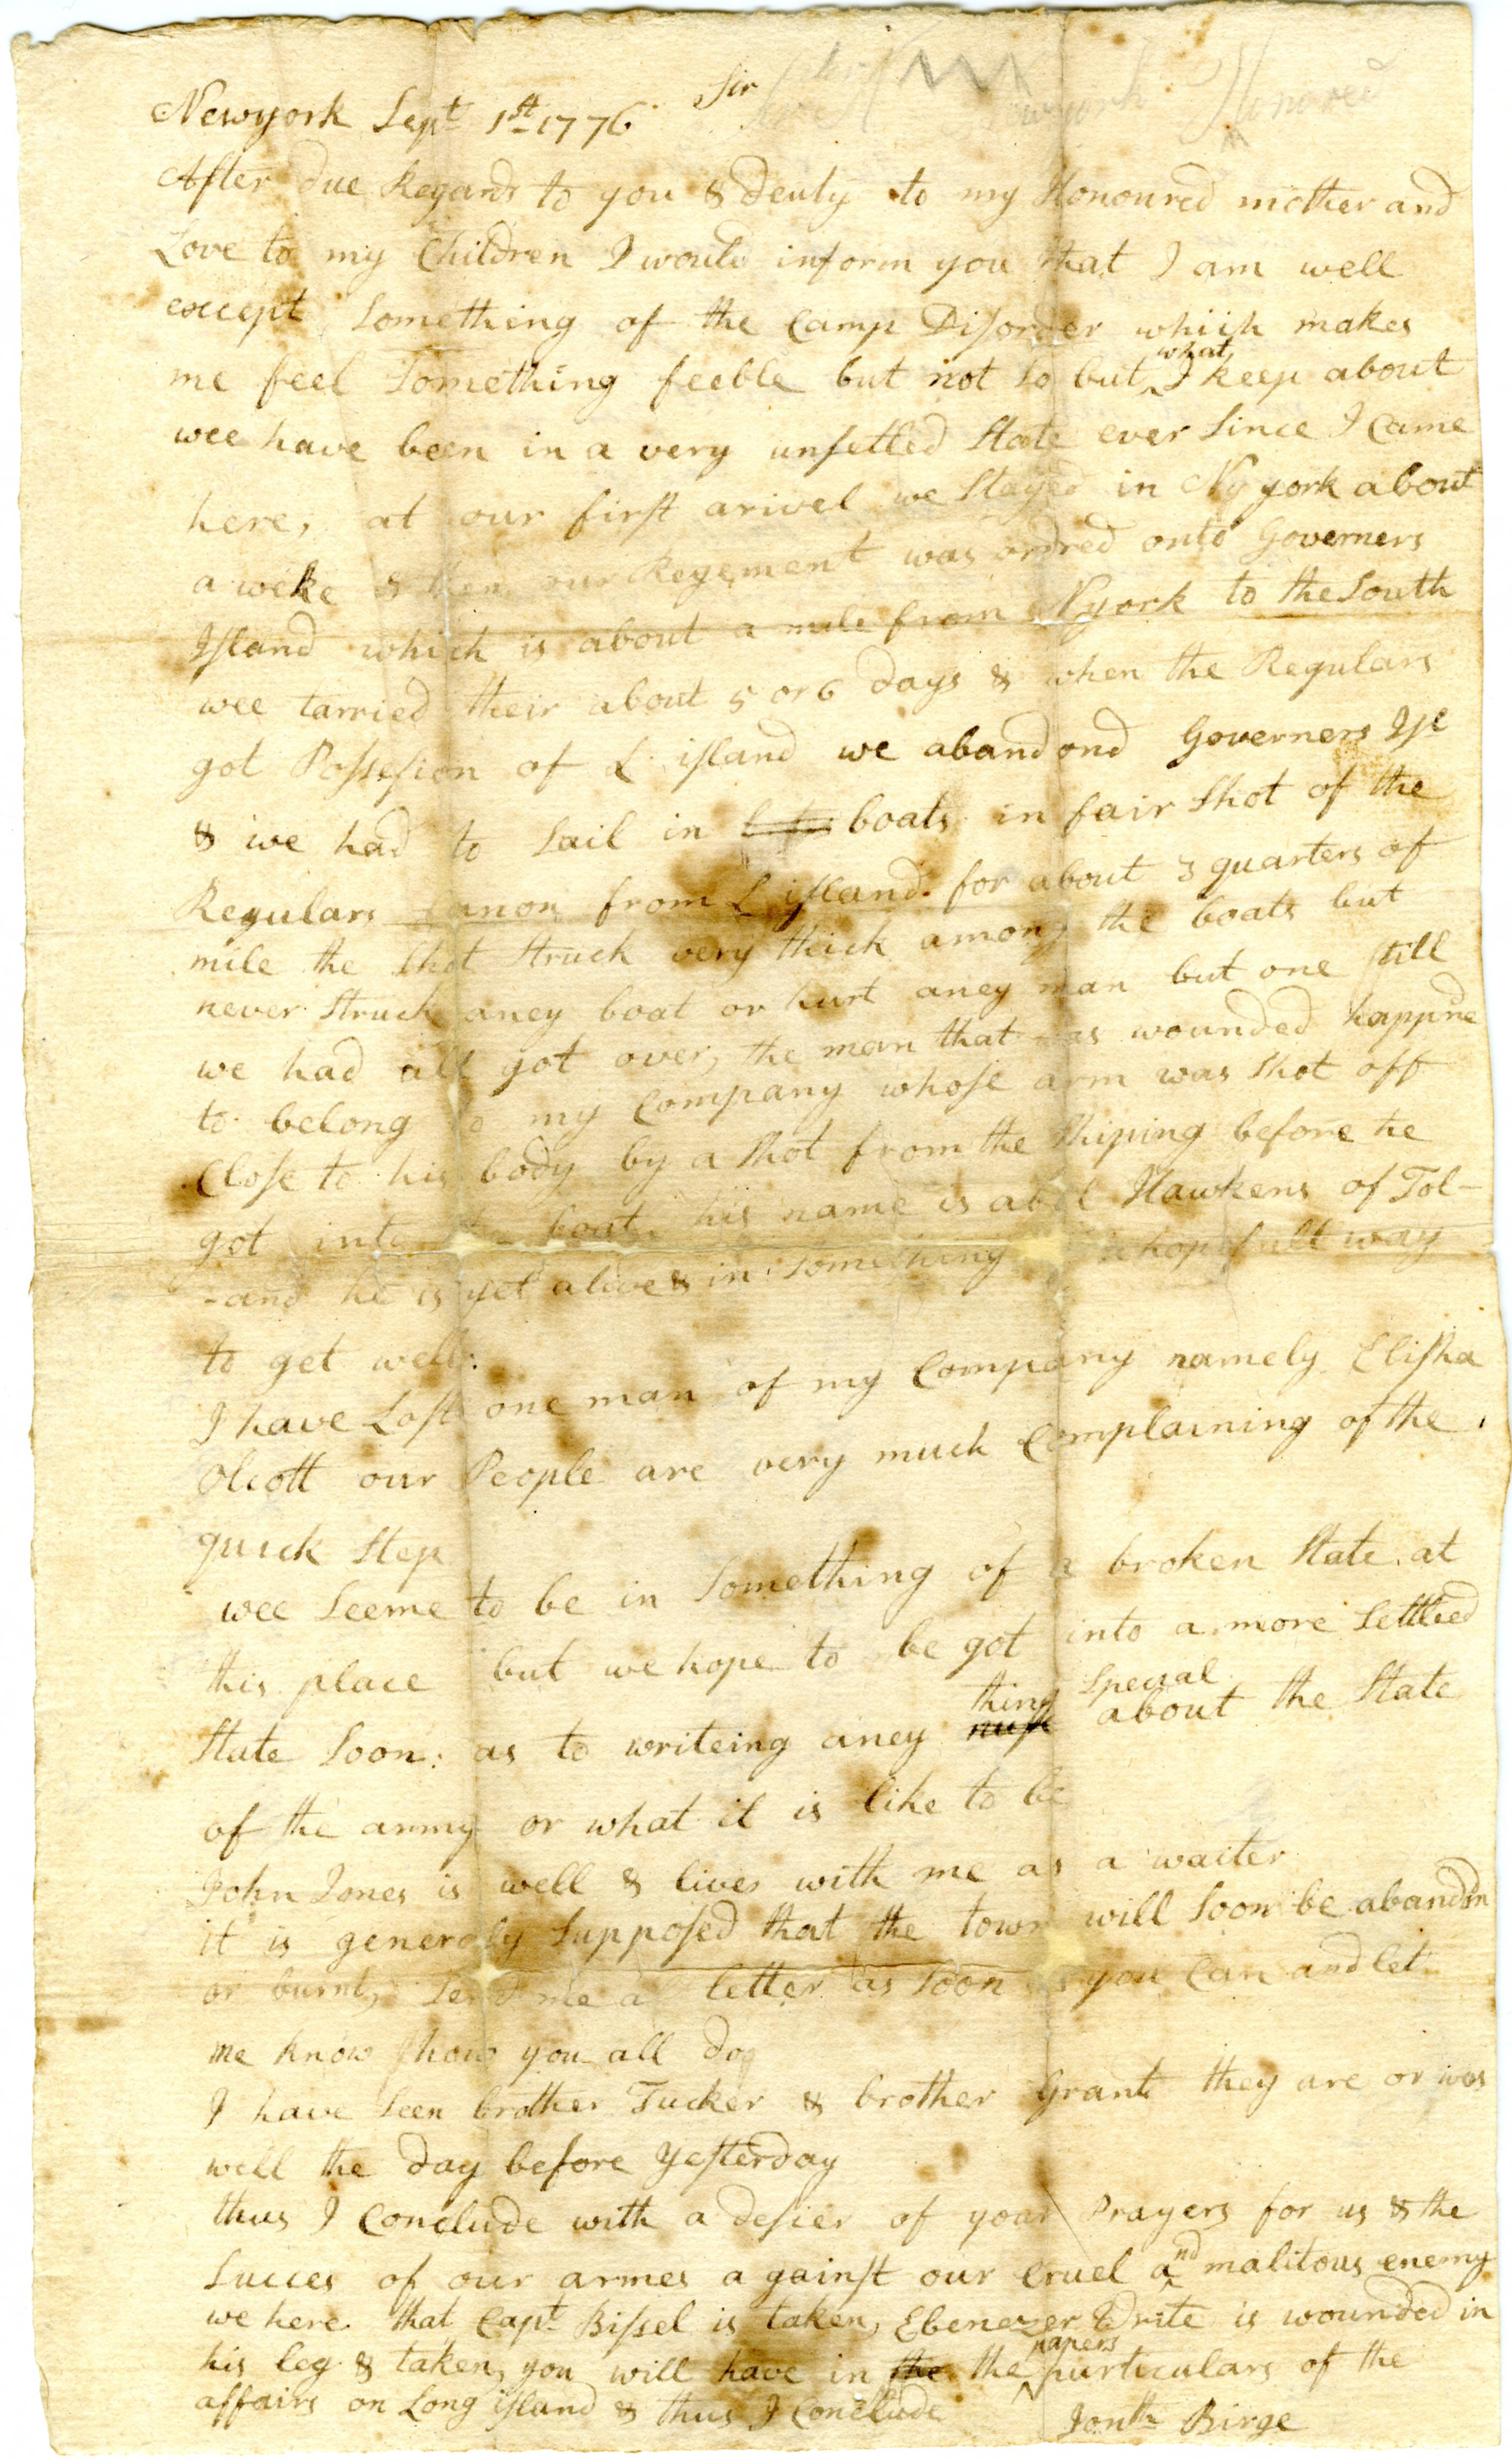 Newyork Sept 1st 1776 Sir
After due Regards to you & deuty to my Honoured mother and
Love to my Children I would inform you that I am well
except something of the Camp Disorder which makes
me feel something feeble but not so but what I keep about
wee have been in a very unsetled State ever since I Came
here, at our first arivel we stayed in Nyork about
a weke & then our Regement was ordred onto Governers
Island which is about a mile from Nyork to the South
wee tarried their about 5 or 6 days & when the Regulars
got Possesion of L island we abandond Governers Isl
& we had to sail in boats in fair shot of the
Regulars Canon from L island for about 3 quarters of
mile the shot struck very thick among the boats but
never struck aney boat or hurt aney man but one still
we had all got over, the man that was wounded happned
to belong to my Company whose arm was shot off
Close to his body by a shot from the shiping before he
got into the boat, his name is abel Hawkens of Tol-
-and he is yet alive & in something of a hopefull way
to get well:
I have Lost one man of my Company namely Elisha
Olcott our People are very much Complaining of the
quick step
wee seeme to be in something of a broken State at
this place but we hope to be got into a more settled
State soon: as to writeing aney thing special about the State
of the army or what it is like to be
John Jones is well & lives with me as a waiter
it is generaly supposed that the town will soon be abandon
or burnt, send me a letter as soon as you can and let
me know how you all do
I have seen brother Tucker & brother Grant they are or was
well the day before yesterday
thus I Conclude with a desier of your Prayers for us & the
succes of our armes a gainst our cruel and malitous enemy
we here that Capt Bissel is taken, Ebenezer Write is wounded in
his leg & taken, you will have in the the papers purticulars of the
affairs on Long island & thus I Conclude
Jonth Birge